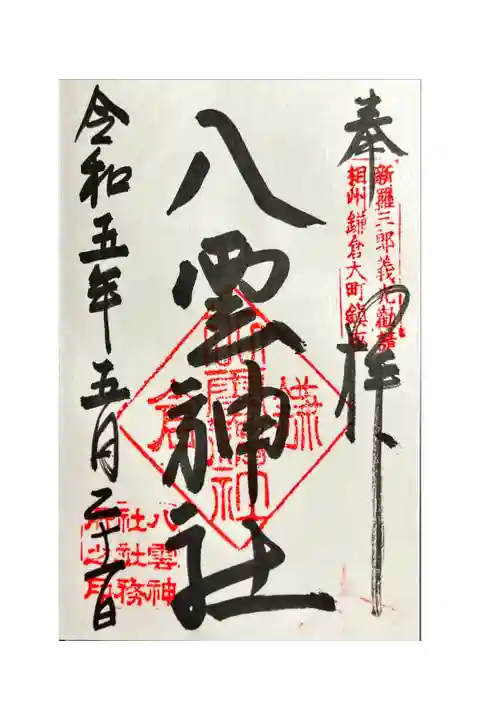 奉拝
新羅三郎義光勧請
相州鎌倉大町鎮座
八雲神社
鎌倉
令和五年五月二十一日
八雲神
社社務
所之印